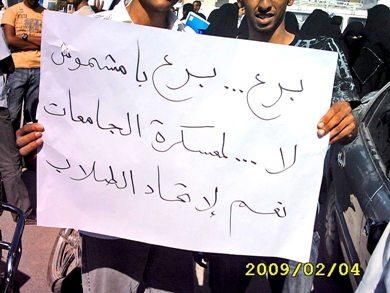 برع... برع بامشموش
لا... لعسكرة الجامعات
نعم لإتحاد الطلاب
2009/02/04